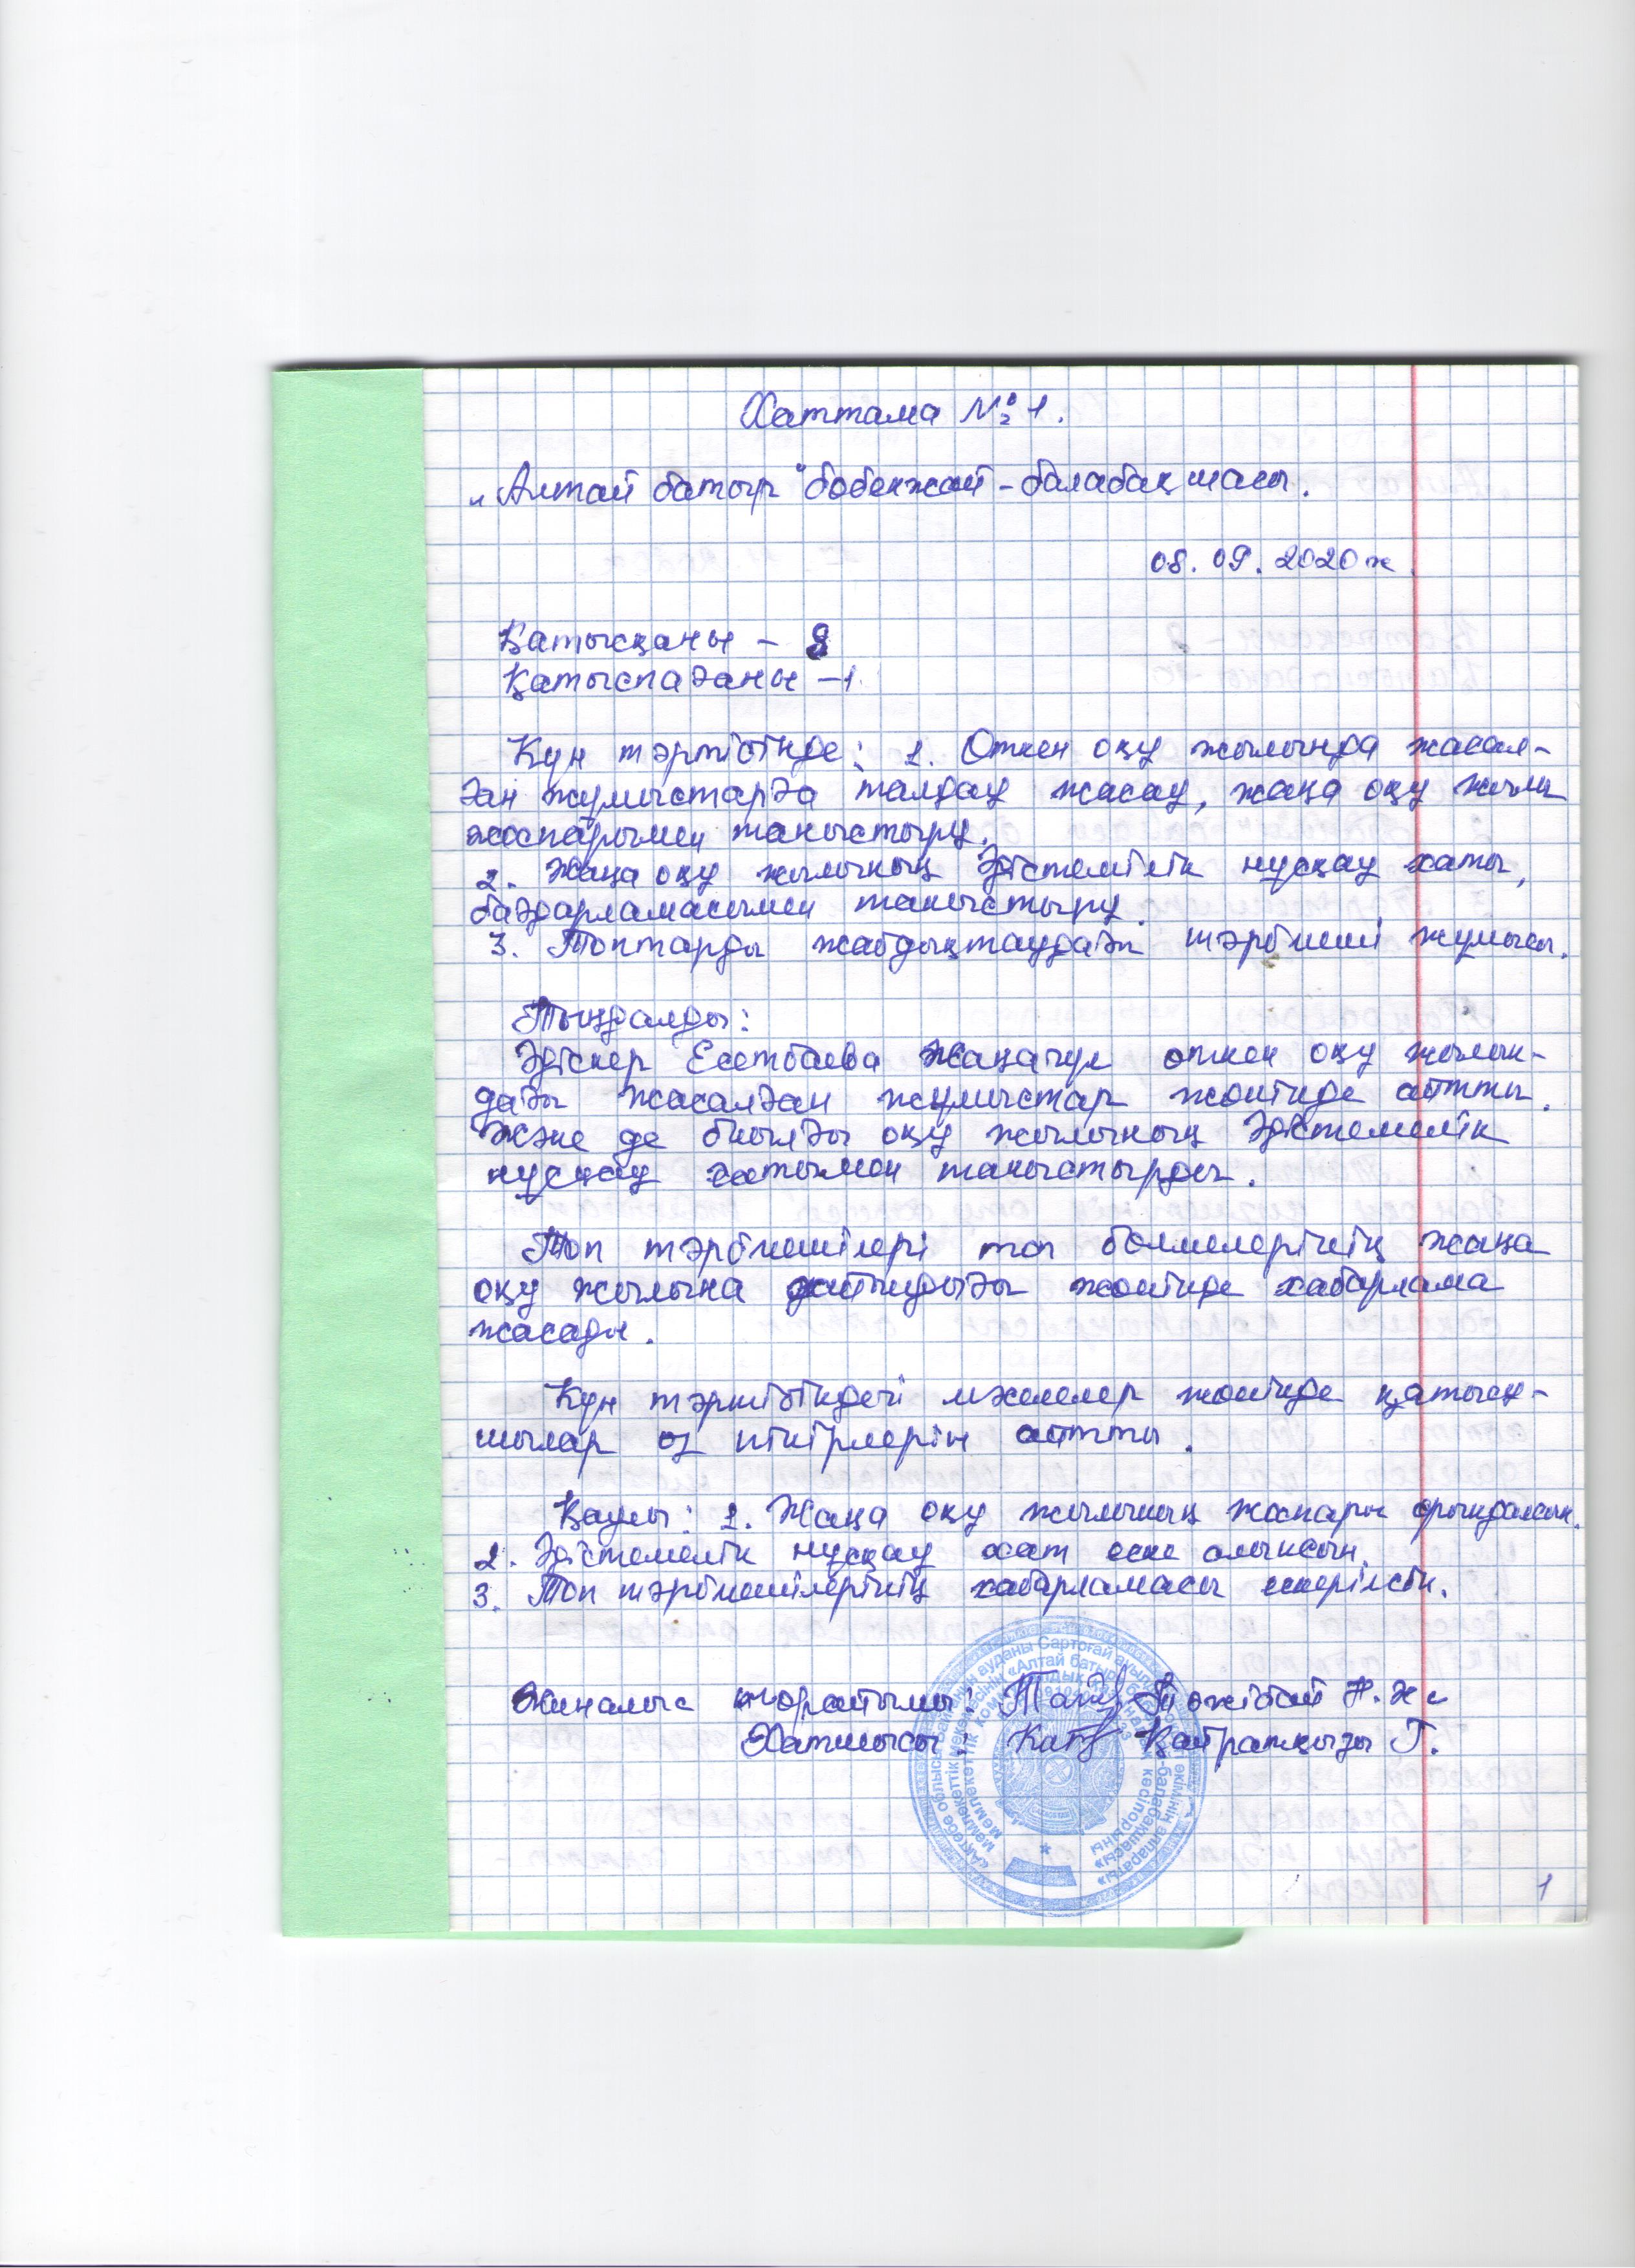 Хаттама №1.
"Алтай батыр" бөбекжай-балабақшасы.
08.09.2020ж.
Қатысқаны - 8
Қатыспағаны -1.
Күн тәртібінде: 1. Өткен оқу жылында жасал-
ған жұмыстарға талдау жасау, жаңа оқу жылы
жоспарымен таныстыру.
2. Жаңа оқу жылының Әдістемілік нұсқау хаты,
бағдарламасымен таныстыру.
3. Топтарды жабдықтаудағы тәрбиеші жұмысы.
Тыңдалды:
Әдіскер Есетбаева Жаңагүл өткен оқу жылын-
дағы жасалған жұмыстар жөнінде айтты.
Және де биылғы оқу жылының Әдістемелік
нұсқау хатымен таныстырды.
Топ тәрбиешілері топ бөлмелерінің жаңа
оқу жылына дайындығы жөнінде хабарлама
жасады.
Күн тәртібіндегі мәселелер жөнінде қатысу-
шылар өз пікірлерін айтты.
Қаулы: 1. Жаңа оқу жылының жоспары орындалсын.
2. Әдістемелік нұсқау хат еске алынсын.
3. Топ тәрбиешілерінің хабарламасы ескерілсін.
Жиналыс төрайымы: Н.Ж
Хатшысы: Қайратқызы Г.
1